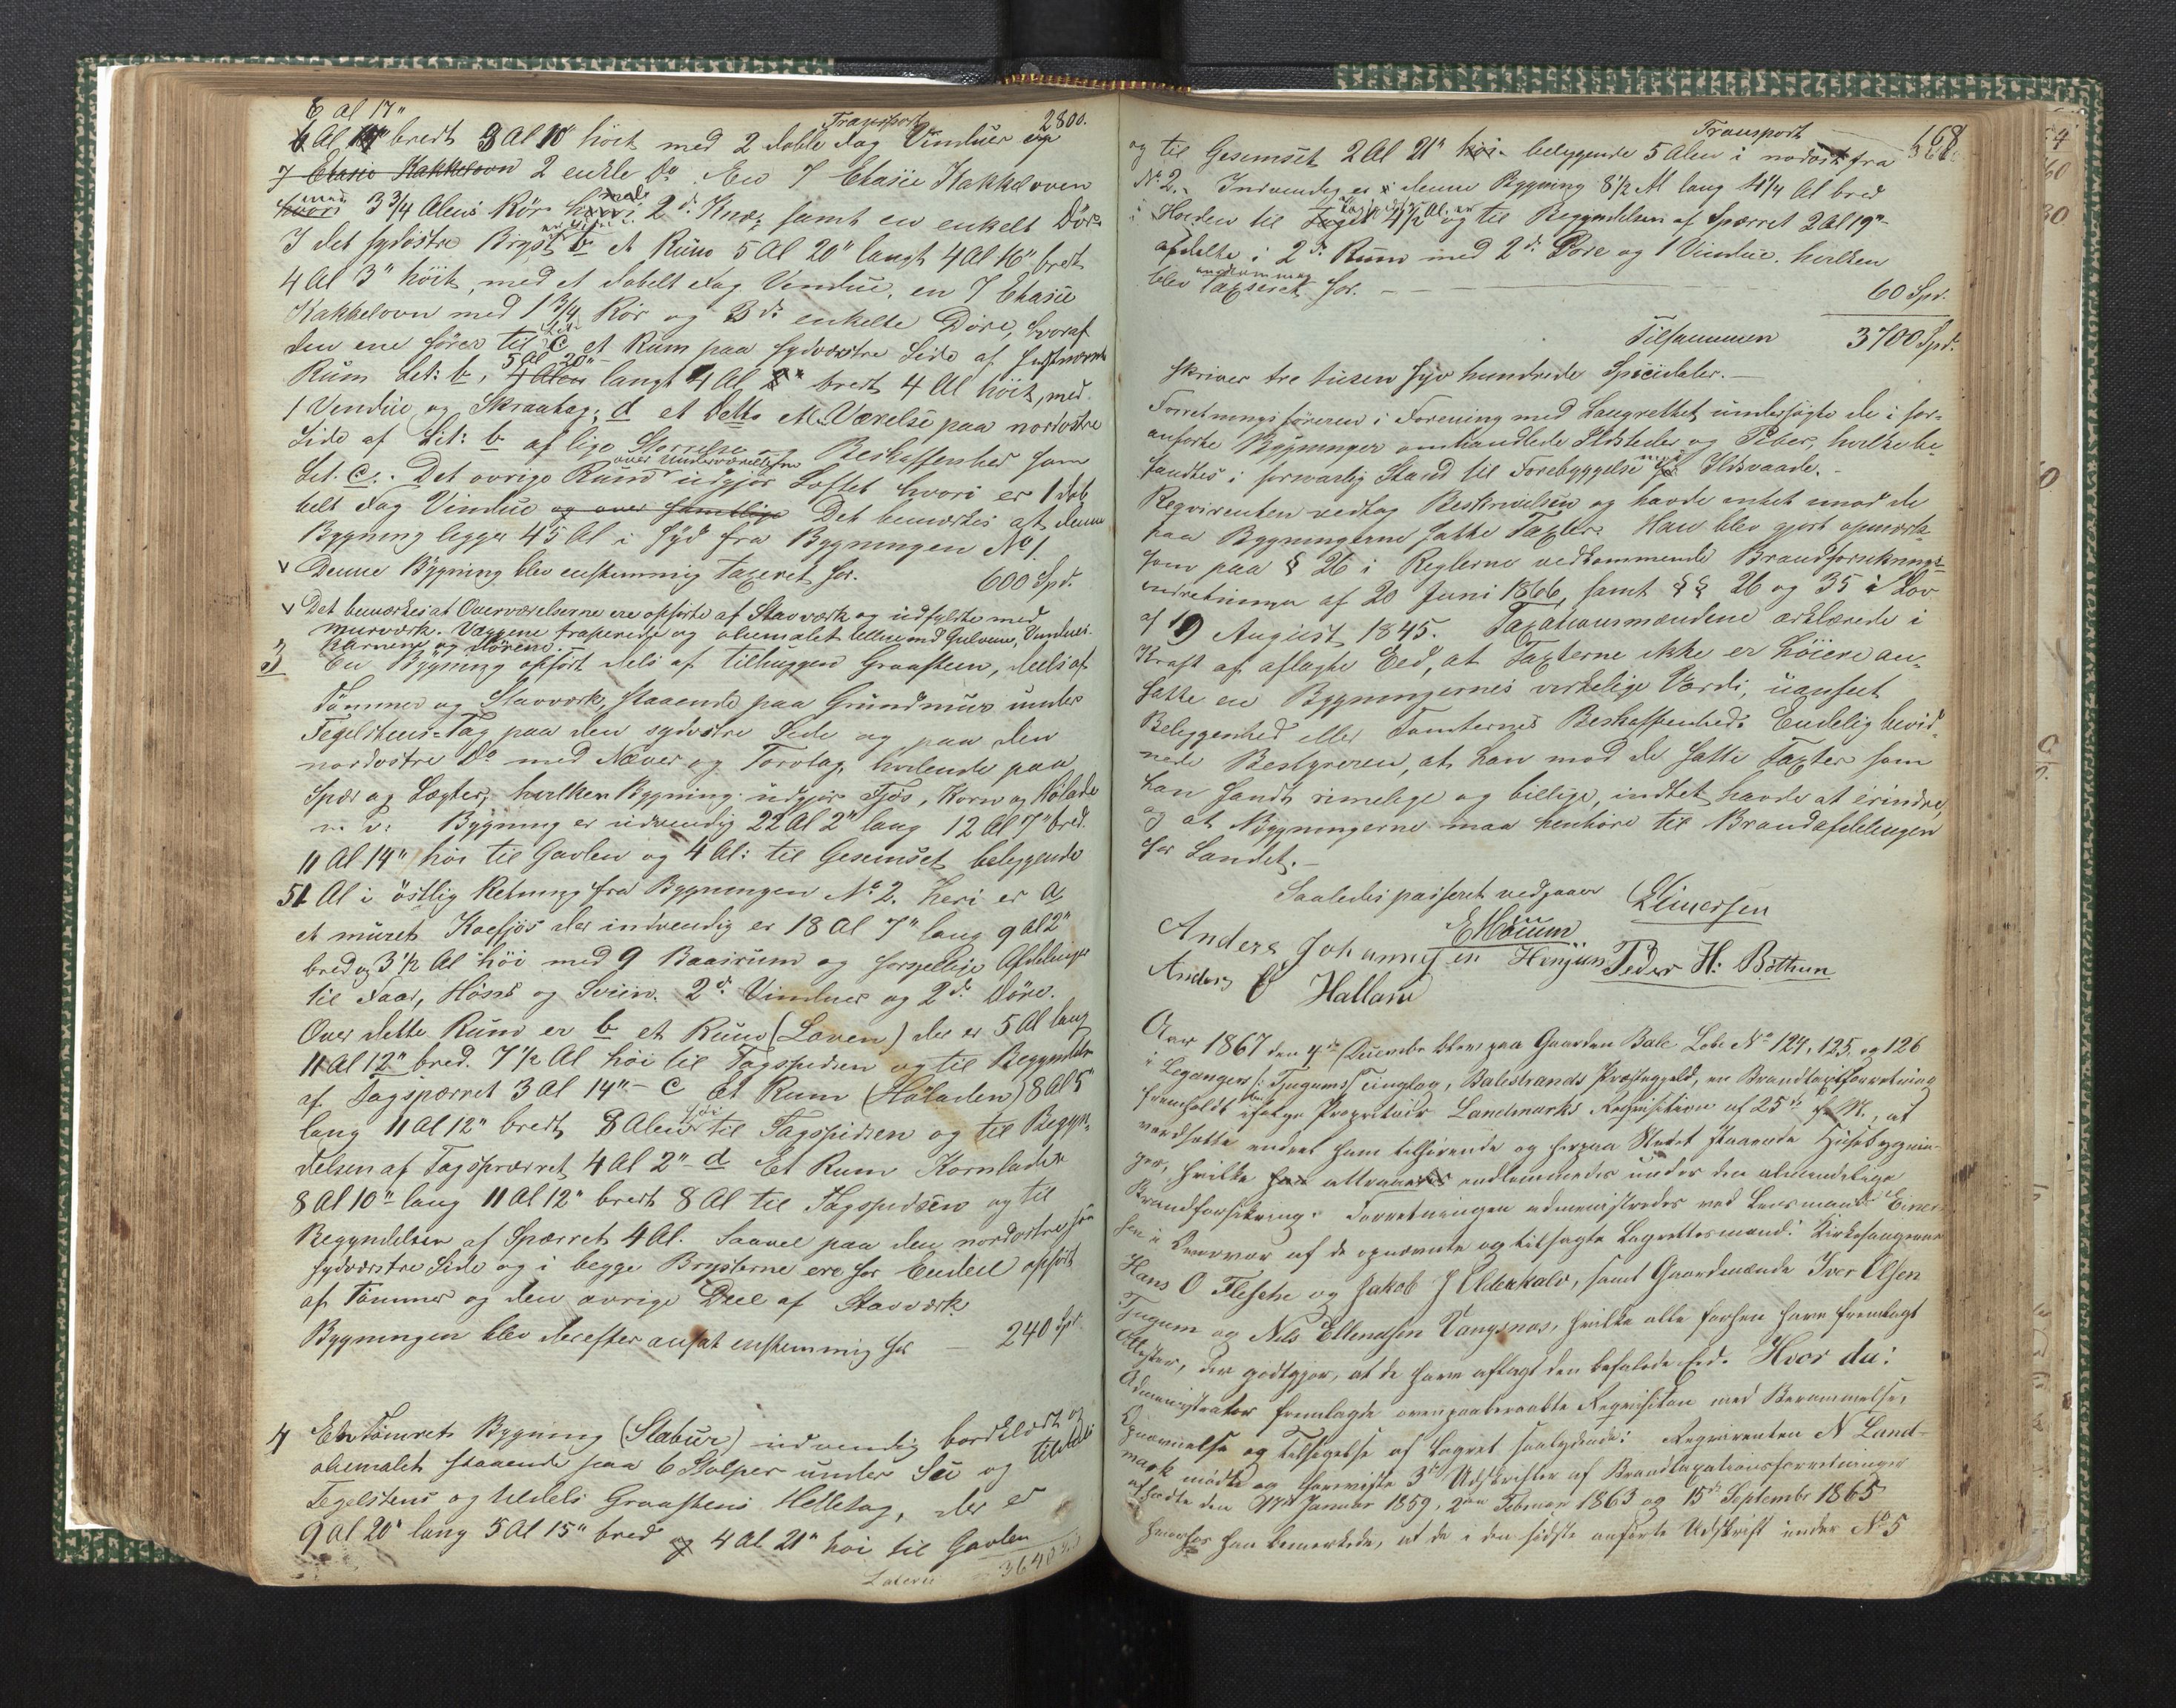 6 Al 17"
Transport 2800.
bredt 3 Al 10" höit med 2 doble Fag Vinduer og
7 Etasies Kakkelovn 2 enkle Do. En 7 Etasies Kakkeloven
med 3 3/4 Alens Rör 2de Knæ, samt en enkelt Dör.
I det sydöstre Bryst b et Rum 5 Al 20" langt 4 Al 16" bredt
4 Al 3" höit, med et dobelt Fag Vindue, en 7 Etasies
Kakkelovn med 1 3/4 Rör og 3de enkelte Döre, hvoraf
den ene förer til Lit: c et Rum paa sydvestre Side af
Rum Lit: b, 5 Al 20" langt 4 Al bredt 4 Al höit, med
1 Vindue og Skraatag; d et Værelse paa nordostre
Side af Lit: b af lige Störrelse og Beskaffenhed som
Lit. c. Det övrige Rum over Underværelserne udgjör Loftet hvori er 1 dob
belt Fag Vindue og over samtlige Det bemærkes at denne
Bygning ligger 45 Al i Syd fra Bygningen No 1.
Denne Bygning blev enstemmig taxeret for. 600 Spd.
Det bemærkes at Overværelserne ere opförte af Stavværk og udfyldte med
Murværk. Væggene traperede og oliemalet tillige med Gulvene, Vindues-
karmene og Dörene.
3) En Bygning opfört dels af tilhuggen Graasteen, deels af
Tömmer og Stavværk, staaende paa Grundmur under
Tegelsteens-Tag paa den sydvestre Side og paa den
nordostre Do med Næver og Torvtag, hvilende paa
Spær og Lægter, hvilken Bygning udgjör Fjös, Korn og Hölade
n. v: Bygning er udvendig 22 Al 2" lang 12 Al 7" bred
11 Al 14" höi til Gavlen og 4 Al: til Gesemset beliggende
51 Al i östlig Retning fra Bygningen No 2. heri er a
et muret Koefjös der indvendig er 18 Al 7" lang 9 Al 2"
bred og 3 1/2 Al höi med 9 Baasrum og forskjellige Afdelinger
til Faar, Höns og Sviin. 2de Vinduer og 2de Döre.
Over dette Rum er b et Rum (Laven) der er 5 Al lang
11 Al 12" bred. 7 1/2 Al höi til Tagspidsen og til Begyndelsen
af Tagspærret 3 Al 14" - c Et Rum (Höladen) 8 Al 5"
lang 11 Al 12" bredt, 8 Alen höi til Tagspidsen og til Begyn-
delsen af Tagspærret 4 Al 2" - d Et Rum Kornladen
8 Al 10" lang 11 Al 12" bredt 8 Al til Tagspidsen og til
Begyndelsen af Spærret 4 Al. Saavel paa den nordostre som
sydvestre Side og i begge Brysterne ere for Endeel opfört
af Tömmer og den övrige Deel af Stavværk
Bygningen blev derefter ansat enstemmig for — 240 Spd.
4 En Tömret Bygning (Stabur) udvendig bordklædt og
oliemalet staaende paa 6 Stolper under Su og tildels
Tegelsteens og tildels Graasteens Helletag, der er
9 Al 20" lang 5 Al 15" bred og 4 Al 21" höi til Gavlen
Lateris 3640
Transport 568
og til Gesemset 2 Al 21" höi. beliggende 5 Alen i nordost fra
No 2. Indvendig er denne Bygning 8 1/2 Al lang 4 1/4 Al bred
i Höiden til Tagspidsen 4 1/2 Al. og til Begyndelsen af Spærret 2 Al 19"
afdelte i 2de Rum med 2de Döre og 1 Vindue. hvilken
blev taxseret for. 60 Spd.
Tilsammen 3700 Spd.
skriver tre tusen syv hundrede Speciedaler.
Forretningsföreren i Forening med Laugrettet undersögte de i for-
anförte Bygninger omhandlede Ildsteder og Piber, hvilke be-
fandtes i forsvarlig Stand til Forebyggelse mod Ildsvaade.
Reqvirenten vedtog Beskrivelsen og havde intet mod de
paa Bygningerne satte Taxter. Han blev gjort opmærk-
som paa § 26 i Reglerne vedkommende Brandforsikrings-
indretningen af 20 Juni 1866, samt §§ 26 og 35 i Lov
af 19 August 1845. Taxationsmændene erklærede i
Kraft af aflagte Eed, at Taxterne ikke er höiere an-
satte en Bygningernes virkelige Værdi, uanseet
Beliggenhed eller Tomternes Beskaffenhed. Endelig bevid-
nede Bestyreren, at han mod de satte Taxter som
han fandt rimelige og billige, indtet havde at erindre,
og at Bygningerne maa henhöre til Brandafdelingen
for Landet.
Saaledes passeret vedgaaer LEinersen
EMöum
Anders Johannesen Henjum Peder H: Böthun
Anders O Halland
Aar 1867 den 4de Decembr blev paa Gaarden Bale Löbe No 124, 125 og 126
i Leganger /: Tjugums/ Tinglag, Balestrands Præstegjeld, en Brandtaxtforretning
fremholdt ifölge Proprietair Landmarks Reqvisition af 25de f. M., at
værdsætte endeel ham tilhörende og herpaa Stedet staaende Huusbygnin-
ger, hvilke attraaes indlemmedes under den almindelige
Brandforsikring. Forretningen administredes ved Lensmand Einer-
sen i Overvær af de opnævnte og tilsagte Lagrettesmænd: Kirkesanger
Hans O Flesche og Jakob J Olderkalv, samt Gaardmænde Iver Olsen
Tjugum og Nils Ellendsen Vangsnæs, hvilke alle forhen have fremlagt
Attester, der godtgjör, at de have aflagt den befalede Eed. Hvor da:
Administrator fremlagde ovenpaaberaabte Reqvisition med Berammelse,
Opnævnelse og Tilsigelse af Lagret saalydende: Reqvirenten N Land-
mark mödte og foreviste 3de Udskrifter af Brandtaxationsforretninger
afholdte den 17de Januar 1859, 2den Februar 1863 og 15de Septembr 1865
hvorfor han bemærkede, at de i den sidste anförte Udskrift under No 5